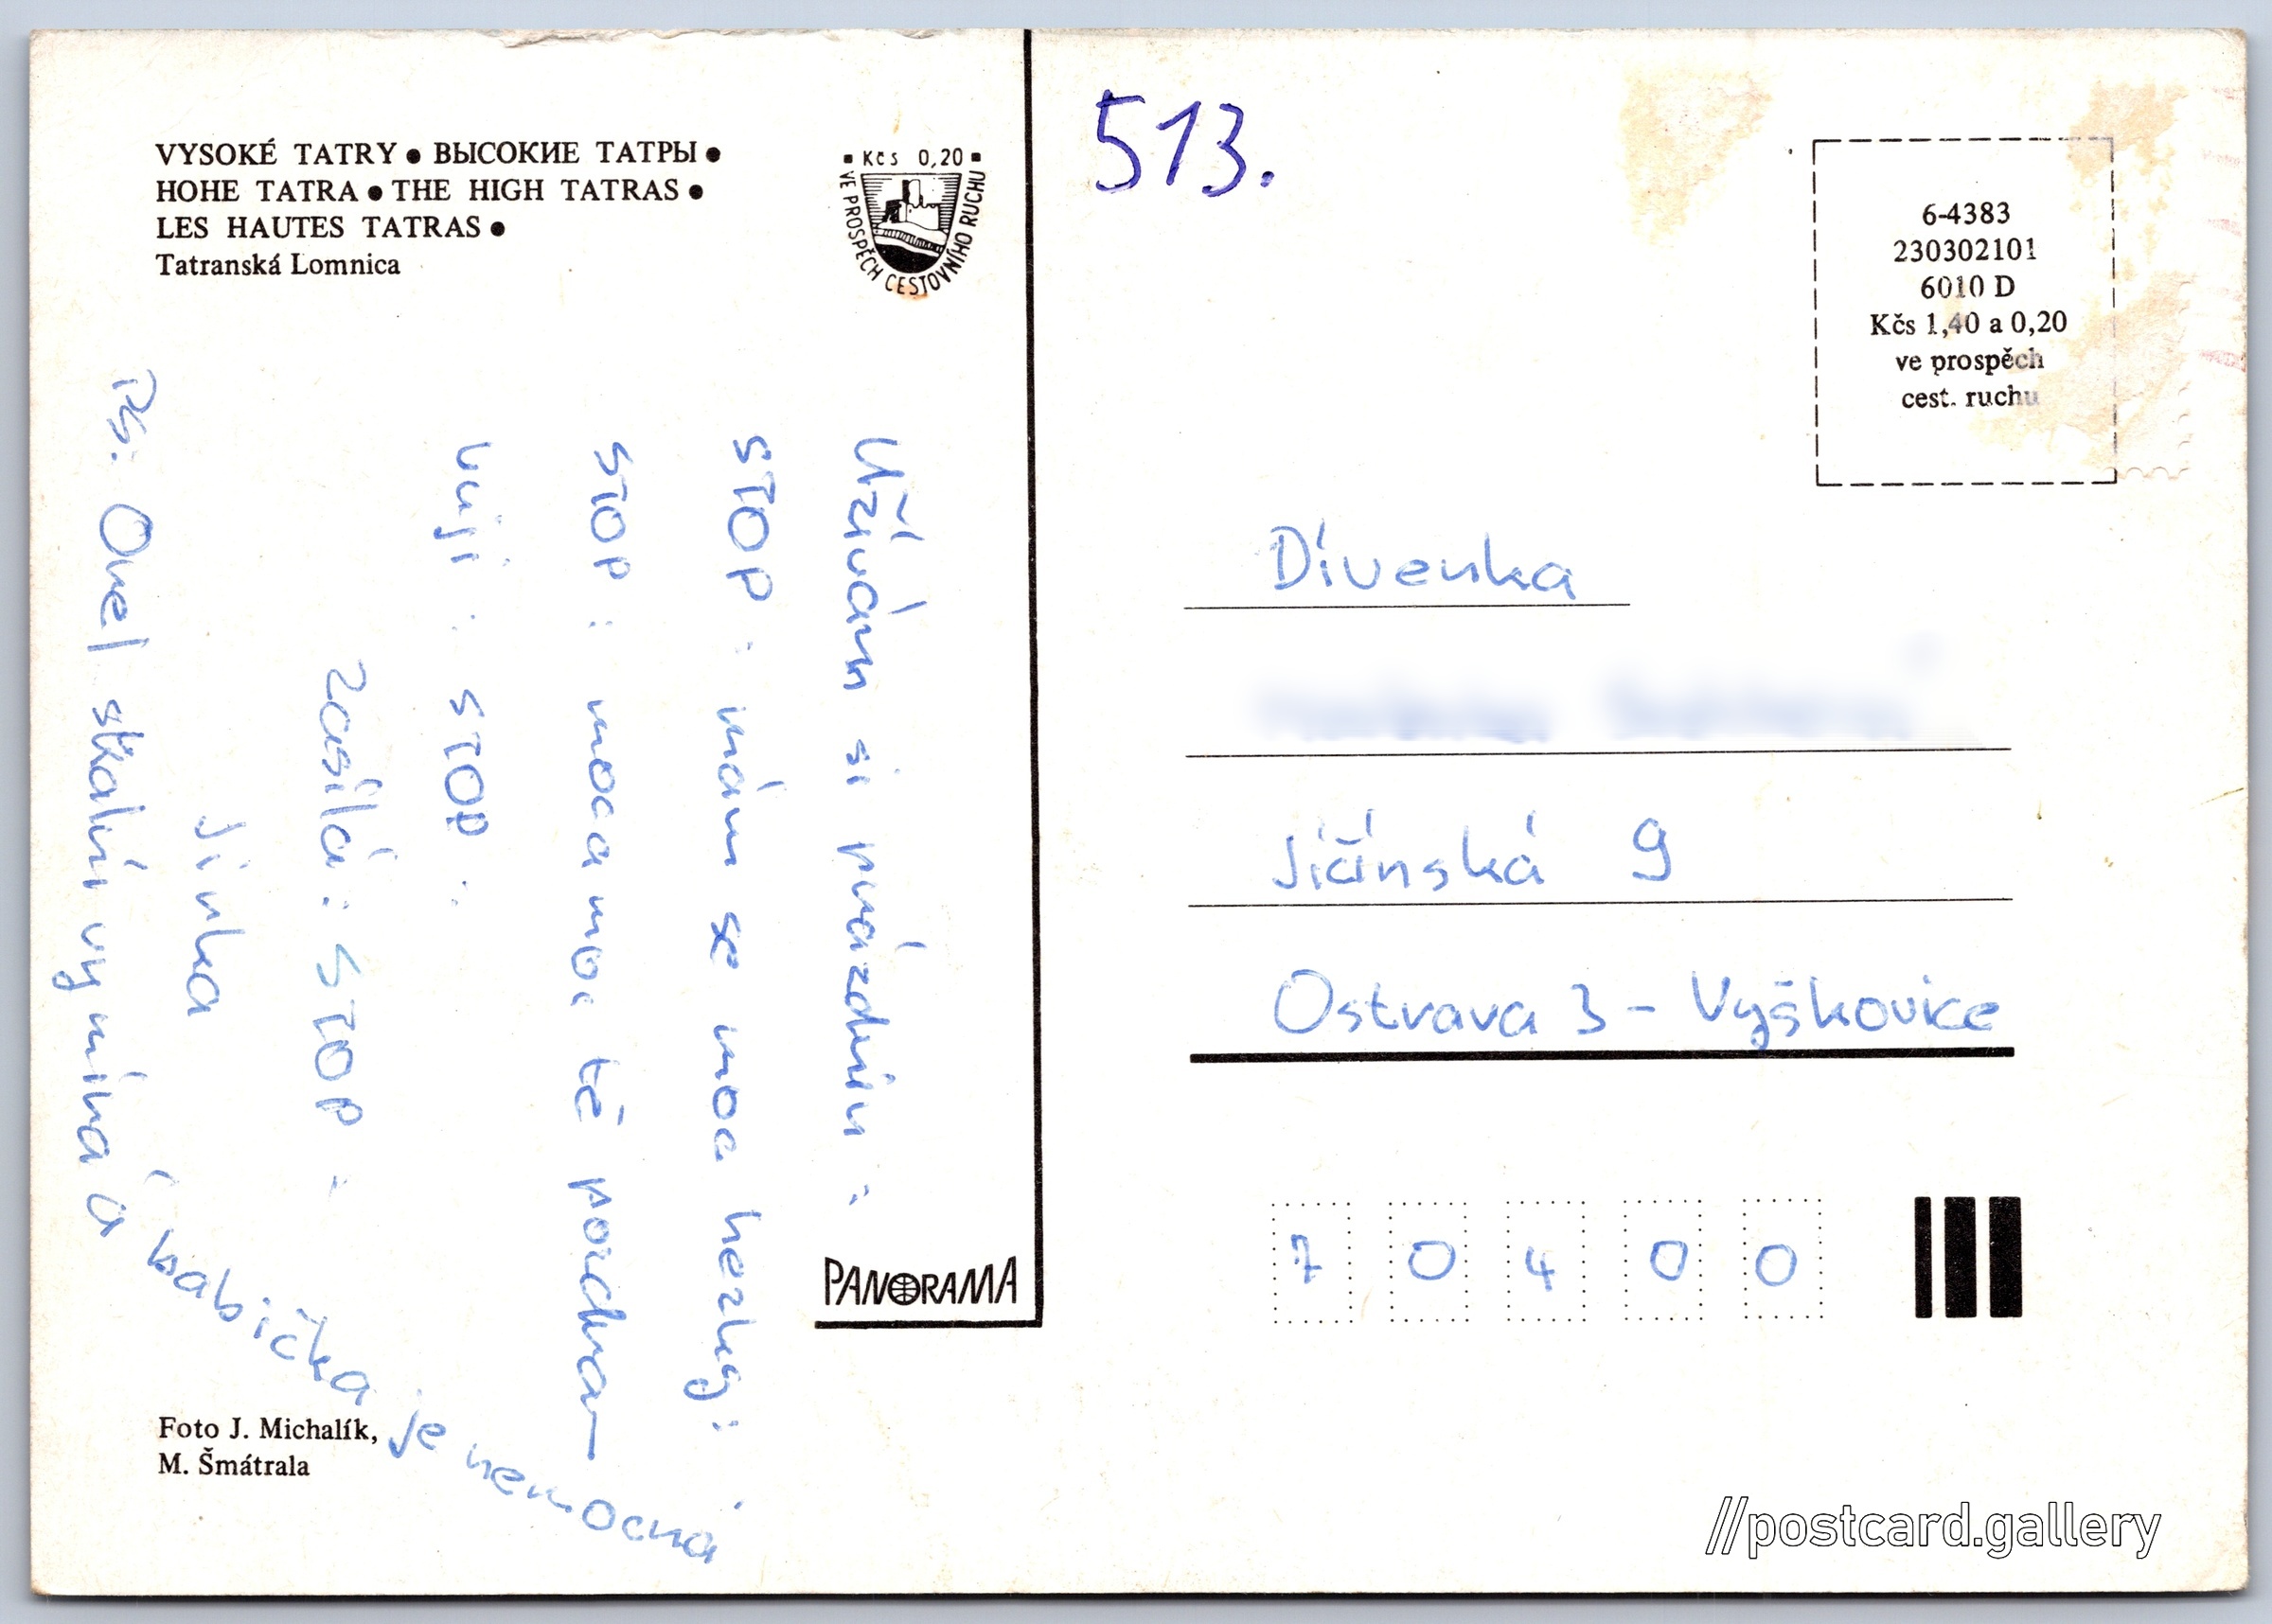 VYSOKÉ TATRY ● ВЫСОКИЕ ТАТРЫ ●
HOHE TATRA ● THE HIGH TATRAS ●
LES HAUTES TATRAS ●
Tatranská Lomnica
▪ Kčs 0,20 ▪
VE PROSPĚCH CESTOVNÍHO RUCHU
Užívám si prázdnin :
STOP : mám se moc hezky :
STOP : moc a moc tě pozdra-
vuji : STOP :
zasílá : STOP :
Jinka
PS: Orel skalní vymírá a babička je nemocná
PANORAMA
Foto J. Michalík,
M. Šmátrala
513.
6-4383
230302101
6010 D
Kčs 1,40 a 0,20
ve prospěch
cest. ruchu
Dívenka
Jičínská 9
Ostrava 3 - Vyškovice
7 0 4 0 0
//postcard.gallery